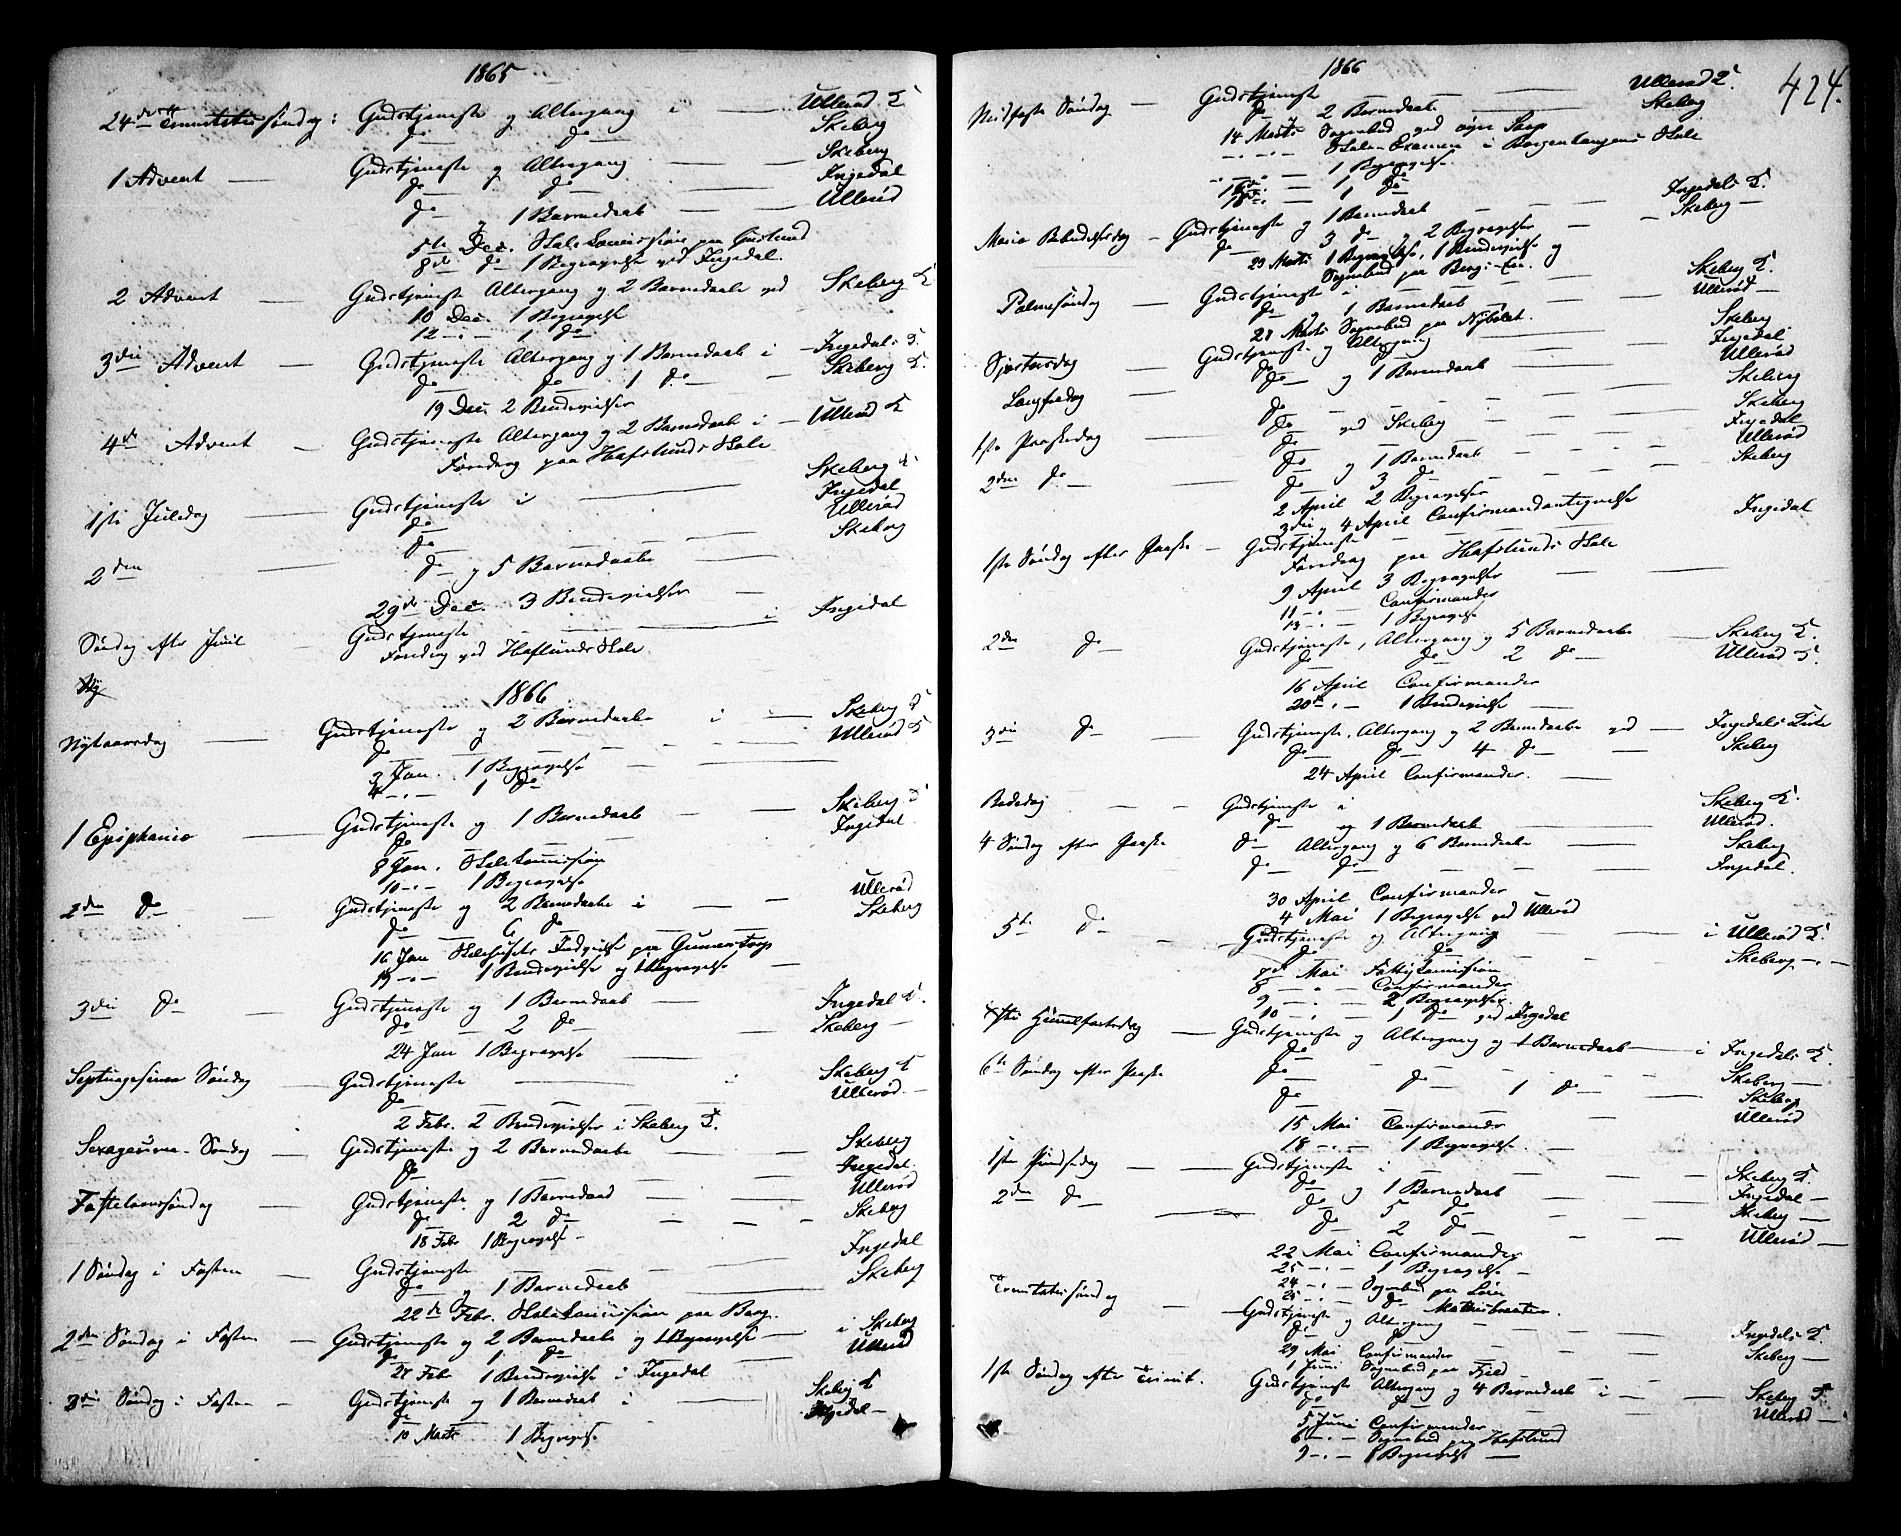 1865
24de Trinitatissøndag: Gudstjeneste og Altergang i — Ullerød K
do — do — Skeberg
1 Advent — Gudstjeneste og Altergang — Skeberg
do — do — Ingedal
do og 1 Barnedaab — Ullerød
5te Dec. Skolecomission paa
8de do 1 Begravelse ved Ingedal.
2 Advent — Gudstjeneste Altergang og 2 Barnedaabe ved Skeberg K
10 Dec. 1 Begravelse
12 -"- 1 do
3die Advent — Gudstjeneste Altergang og 1 Barnedaab i — Ingedals K.
do — do — 1 do — Skeberg K.
19 Dec. 2 Brudevielser
4de Advent — Gudstjeneste Altergang og 2 Barnedaabe i — Ullerød K
Foredrag paa Hafslunds Skole
1ste Juledag — Gudstjeneste i — Skeberg K
do — Ingedal
do — Ullerød
2den — do og 5 Barnedaabe — Skeberg
29de Dec. 3 Brudevielser —
Søndag efter Juul — Gudstjeneste — i Ingedal
Foredrag ved Haflunds Skole
Ny
1866
Nytaarsdag — Gudstjeneste og 2 Barnedaabe i — Skeberg K
do — Ullerød K
3 Jan. 1 Begravelse
4 -"- 1 do
1 Epiphania — Gudstjeneste og 1 Barnedaab — Skeberg K
do — Ingedal.
8 Jan. Skolecomission
10 -"- 1 Begravelse
2den do — Gudstjeneste og 2 Barnedaabe i — Ullerød
do 6 do — Skeberg
16 Jan Skolehusets Indvielse paa Gunnerstorp
19 -"- 1 Brudevielse og 1 Begravelse —
3die do — Gudstjeneste og 1 Barnedaab — Ingedal K.
do — 2 do — Skeberg —
24 Jan 1 Begravelse
Septuagesima Søndag — Gudstjeneste — i Skeberg K
do — Ullerød —
2 Febr. 2 Brudevielser i Skeberg K.
Sexagesima Søndag — Gudstjeneste og 2 Barnedaabe — Skeberg
do — Ingedal
Fastelavnssøndag — Gudstjeneste og 1 Barnedaab — Ullerød
do 2 do — Skeberg
18 Febr 1 Begravelse —
1 Søndag i Fasten — Gudstjeneste — Ingedal
do og 1 Barnedaab — Skeberg
22de Febr. Skolecomission paa Berg.
2den Søndag i Fasten — Gudstjeneste og 2 Barnedaabe og 1 Begravelse — i Skeberg
do 1 do — Ullerød
27 Febr 1 Brudevielse i Ingedal
3die Søndag i Fasten — Gudstjeneste og 1 Barnedaab i — Skeberg K
do — Ingedal —
10 Marts 1 Begravelse
1866
424.
Midfaste Søndag — Gudstjeneste — Ullerød K.
do 2 Barnedaabe — Skeberg
14 Marts Sognebud ved øvre Sarp
-"- -"- Skole-Examen i Borgenhaugens Skole
-"- -"- 1 Begravelse
16de -"- 1 do
18de -"- 1 do
Maria Bebudelsesdag — Gudstjeneste og 1 Barnedaab — Ingedals K.
do — 3 do og 2 Begravelser — Skeberg —
23 Marts 1 Begravelse, 1 Brudevielse og
Sognebud paa Bergs-Eie.
Palmesøndag — Gudstjeneste i — Skeberg K.
do og 1 Barnedaab — Ullerød —
28 Marts Sognebud paa Nybølet.
Skjertorsdag — Gudstjeneste og Altergang — Skeberg
do — do — Ingedal
Langfredag — do og 1 Barnedaab — Ullerød
do — Skeberg
1ste Paaskedag — do ved Skeberg — Skeberg
do — Ingedal
2den do — do og 1 Barnedaab — Ullerød
do 3 do — Skeberg
2 April 2 Begravelser
3die og 4 April Confirmandantegnelse
1ste Søndag efter Paaske — Gudstjeneste — Ingedal
Foredrag paa Hafslunds Skole
9 April 3 Begravelser
11 -"- Confirmander
13 -"- 1 Begravelse
2den do — Gudstjeneste, Altergang og 5 Barnedaabe — Skeberg K.
do — do 2 do — Ullerød K.
16 April Confirmander
20de -"- 1 Brudevielse
3die do — Gudstjeneste, Altergang og 2 Barnedaabe ved — Ingedals Kirke
do — do 4 do — Skeberg
24 April Confirmander.
Bededag — Gudstjeneste i — Skeberg K.
do og 1 Barnedaab — Ullerød.
4 Søndag efter Paaske — do Altergang og 6 Barnedaabe — Skeberg
do — do — Ingedal.
30 April Confirmander
4 Mai 1 Begravelse ved Ullerød
5te do — Gudstjeneste og Altergang — i Ullerød K.
do — do — Skeberg —
7de Mai Fattigcomission
8 -"- Confirmander
9 -"- 2 Begravelser
10 -"- 1 do ved Ingedal
Christi Himmelfartsdag — Gudstjeneste og Altergang og 1 Barnedaab — i Ingedals K.
do — Skeberg —
6te Søndag efter Paaske — do — do 1 do — Skeberg
do — Ullerød
15 Mai Confirmander
18 -"- 1 Begravelse —
1ste Pindsedag — Gudstjeneste i — Skeberg K.
do og 1 Barnedaab — Ingedal —
2den do — do 5 do — Skeberg —
do 2 do — Ullerød —
22 Mai Confirmander
25 -"- 1 Begravelse —
24 -"- Sognebud paa
25 -"- do
Trinitatissøndag — Gudstjeneste og Altergang — Ingedals K.
do — do — Skeberg —
29 Mai Confirmander
1 Juni Sognebud paa Fjeld
1ste Søndag efter Trinit. Gudstjeneste Altergang og 4 Barnedaab i — Skeberg K.
do — do — Ullerød —
5 Juni Confirmander
6 -"- Sognebud paa Hafslund
9 -"- 1 Begravelse —